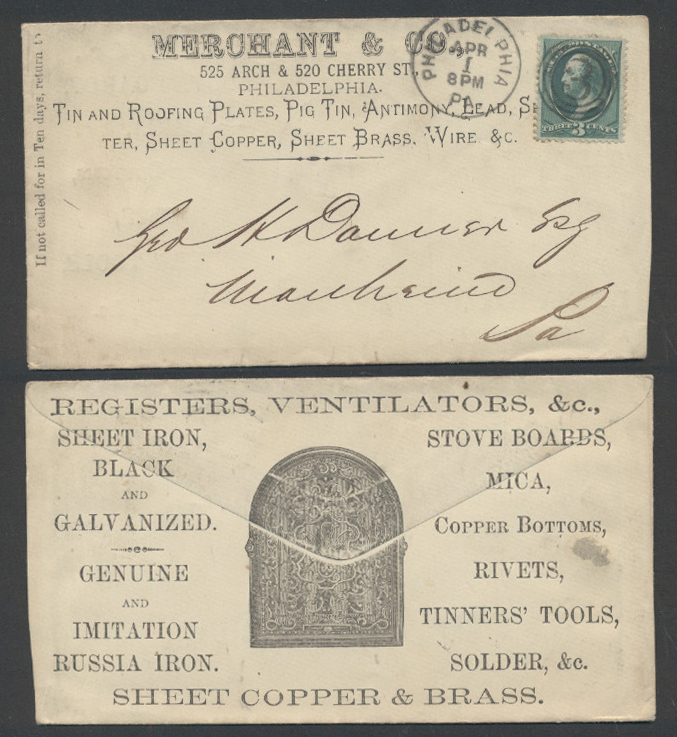 If not called for in Ten days, return to
MERCHANT & CO.,
525 ARCH & 520 CHERRY ST.,
PHILADELPHIA.
TIN AND ROOFING PLATES, PIG TIN, ANTIMONY, LEAD,
TER, SHEET COPPER, SHEET BRASS, WIRE &C.
PHILADELPHIA
APR
1
8PM
PA.
THREE 3 CENTS
Geo H Danner Esq
Manheim
Pa
REGISTERS, VENTILATORS, &c.,
SHEET IRON,
BLACK
AND
GALVANIZED.
GENUINE
AND
IMITATION
RUSSIA IRON.
STOVE BOARDS,
MICA,
COPPER BOTTOMS,
RIVETS,
TINNERS' TOOLS,
SOLDER, &c.
SHEET COPPER & BRASS.